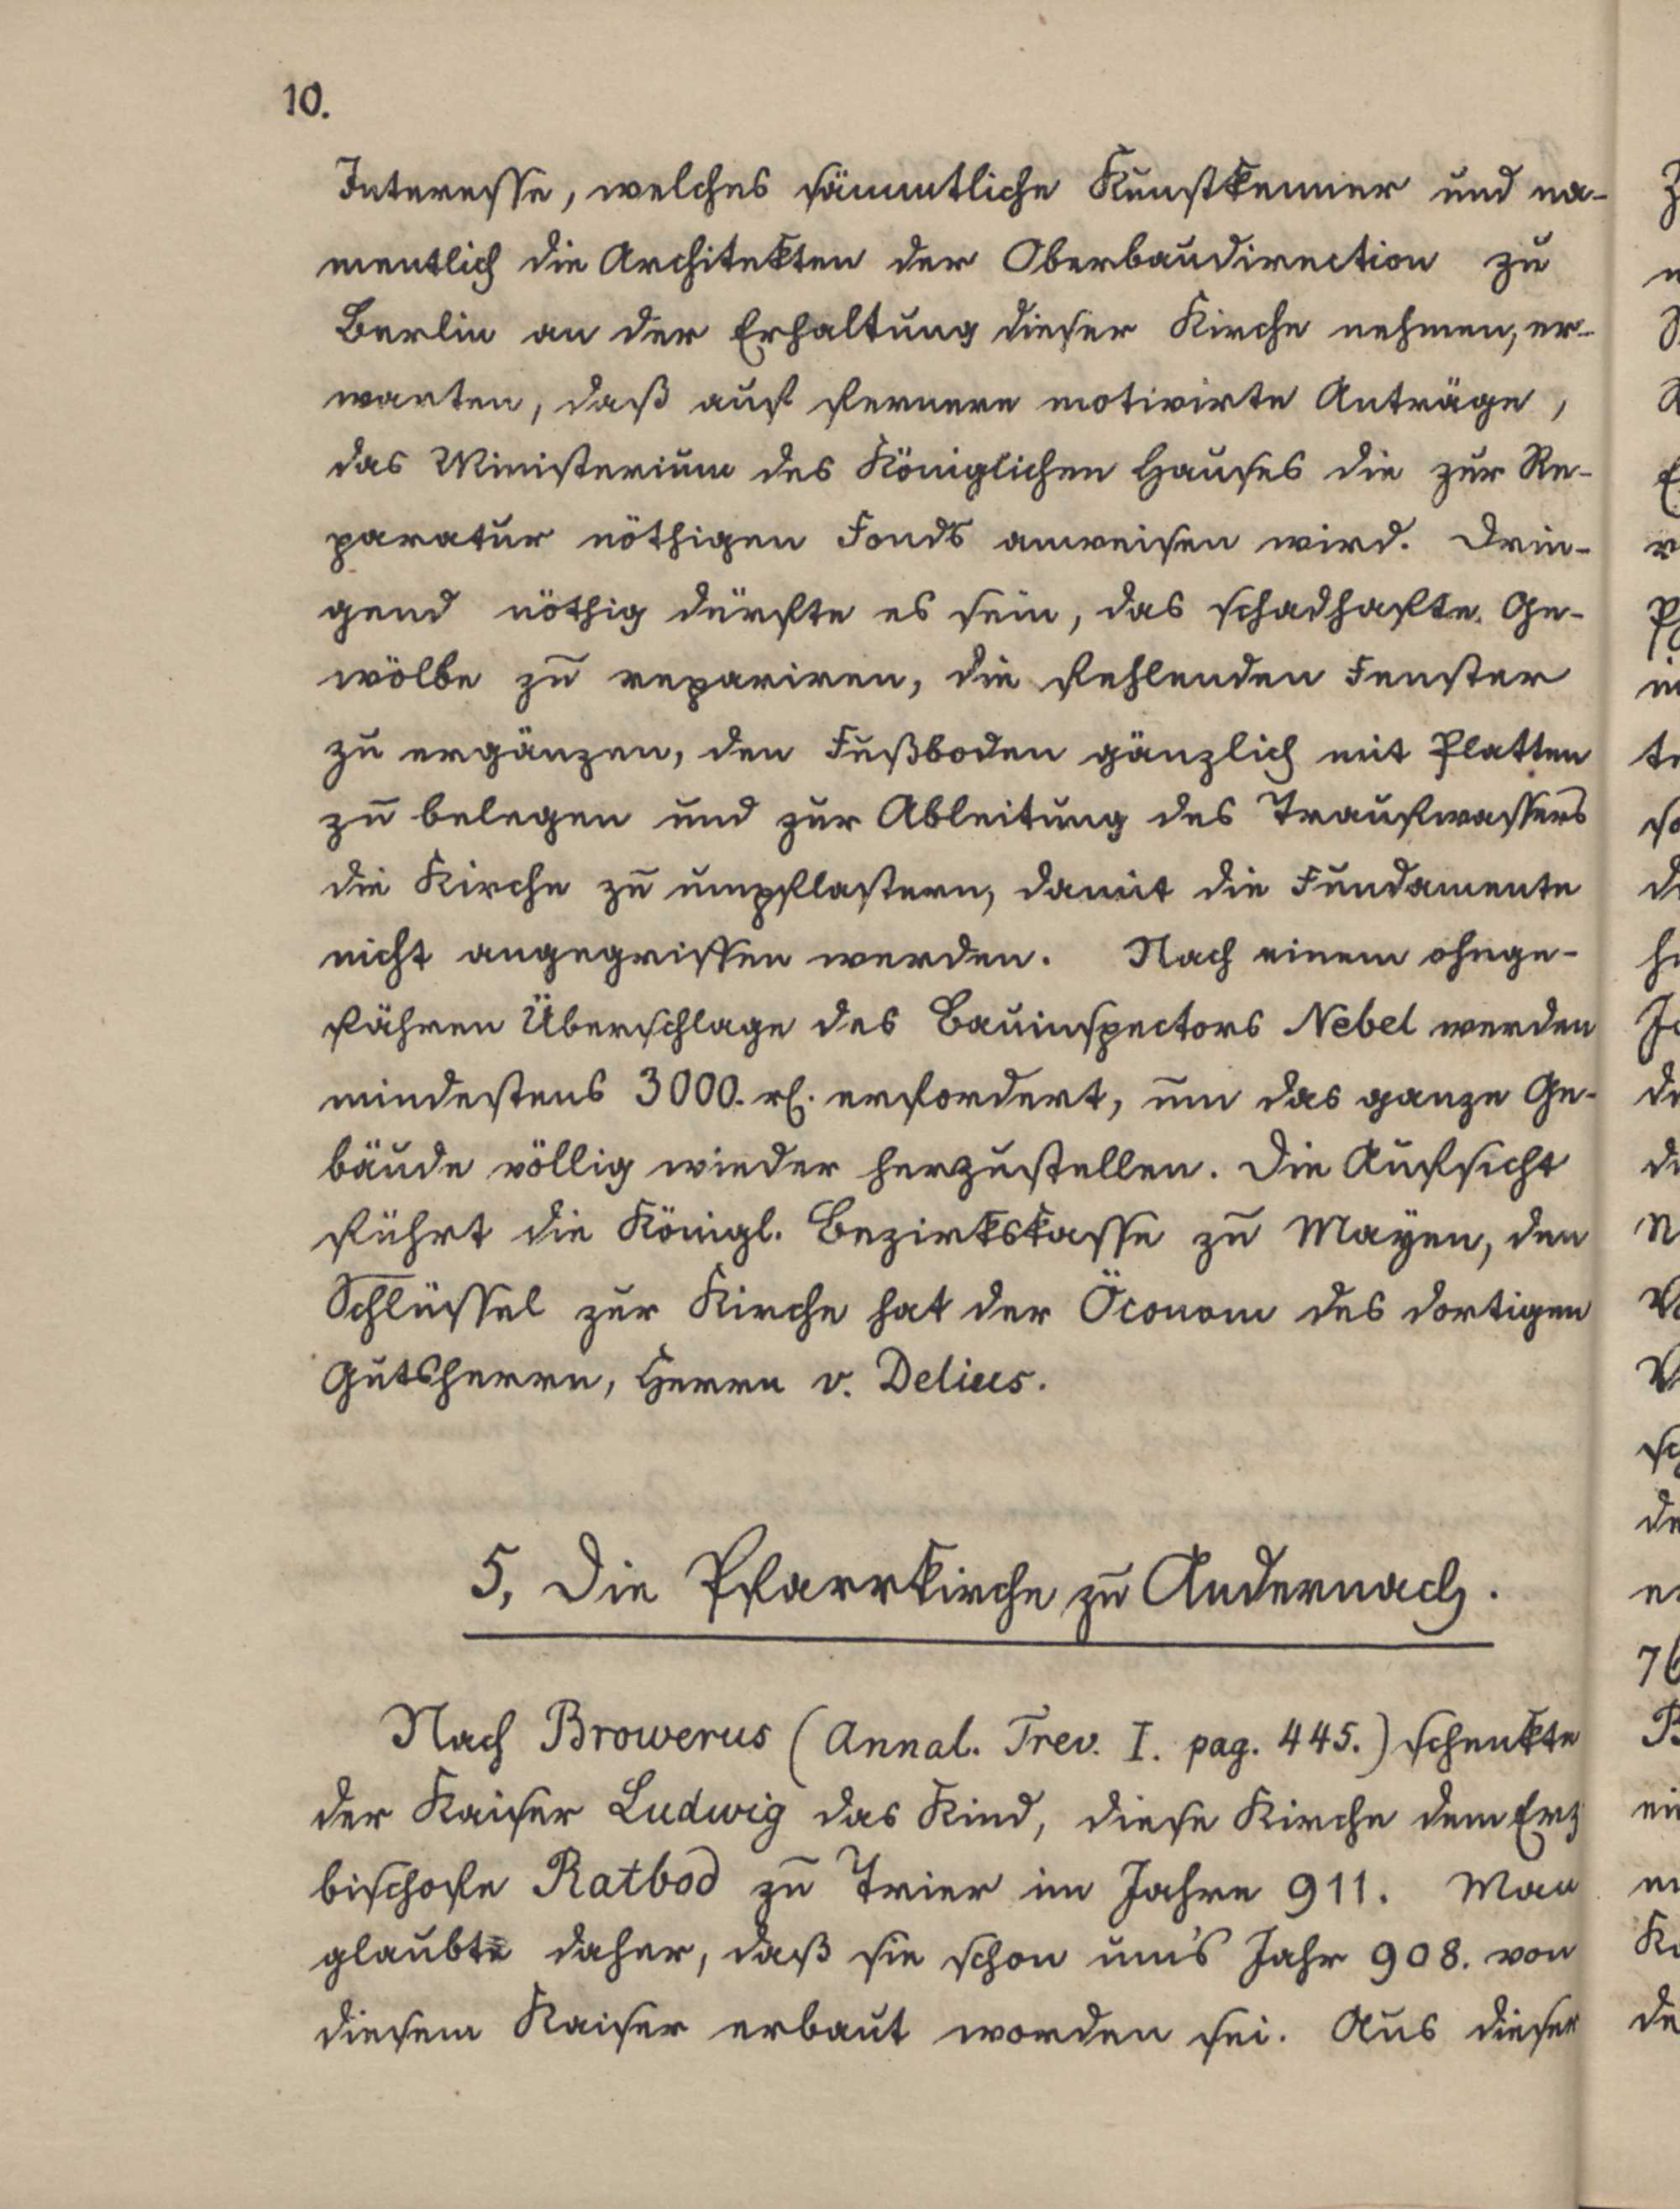 10.
Interesse, welches sämmtliche Kunstkenner und na-
mentlich die Architekten der Oberbaudirection zu
Berlin an der Erhaltung dieser Kirche nehmen, er-
warten, daß auf fernere motivirte Anträge,
das Ministerium des Königlichen Hauses die zur Re-
paratur nöthigen Fonds anweisen wird. Drin-
gend nöthig dürfte es sein, das schadhafte Ge-
wölbe zu repariren, die fehlenden Fenster
zu ergänzen, den Fußboden gänzlich mit Platten
zu belegen und zur Ableitung des Traufwassers
die Kirche zu umpflastern, damit die Fundamente
nicht angegriffen werden. Nach einem ohnge-
fähren Überschlage des Bauinspectors Nebel werden
mindestens 3000. rℓ. erfordert, um das ganze Ge-
bäude völlig wieder herzustellen. Die Aufsicht
führt die Königl. Bezirkskasse zu Mayen, den
Schlüssel zur Kirche hat der Öconom des dortigen
Gutsherrn, Herrn v. Delius.
5, Die Pfarrkirche zu Andernach.
Nach Browerus (Annal. Trev. I. pag. 445.) schenkte
der Kaiser Ludwig das Kind, diese Kirche dem Erz
bischofe Ratbod zu Trier im Jahre 911. Man
glaubte daher, daß sie schon um's Jahr 908. von
diesem Kaiser erbaut worden sei. Aus dieser